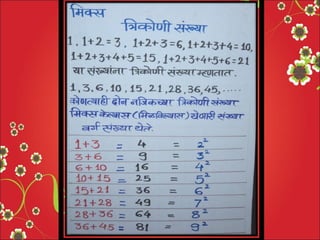 मिक्स
त्रिकोणी संख्या
1, 1+2=3, 1+2+3=6, 1+2+3+4=10,
1+2+3+4+5=15, 1+2+3+4+5+6=21
या संख्यांना त्रिकोणी संख्या म्हणतात.
1, 3, 6, 10, 15, 21, 28, 36, 45, .....
कोणत्याही दोन नजिकच्या त्रिकोणी संख्या
मिक्स केल्यास (मिळविल्यास) येणारी संख्या
वर्ग संख्या येते.
1+3 = 4 = 2²
3+6 = 9 = 3²
6+10 = 16 = 4²
10+15 = 25 = 5²
15+21 = 36 = 6²
21+28 = 49 = 7²
28+36 = 64 = 8²
36+45 = 81 = 9²